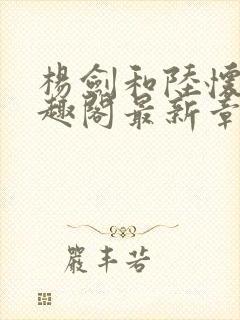 楊劍和陸懷
趣閣最新章
嚴丰若